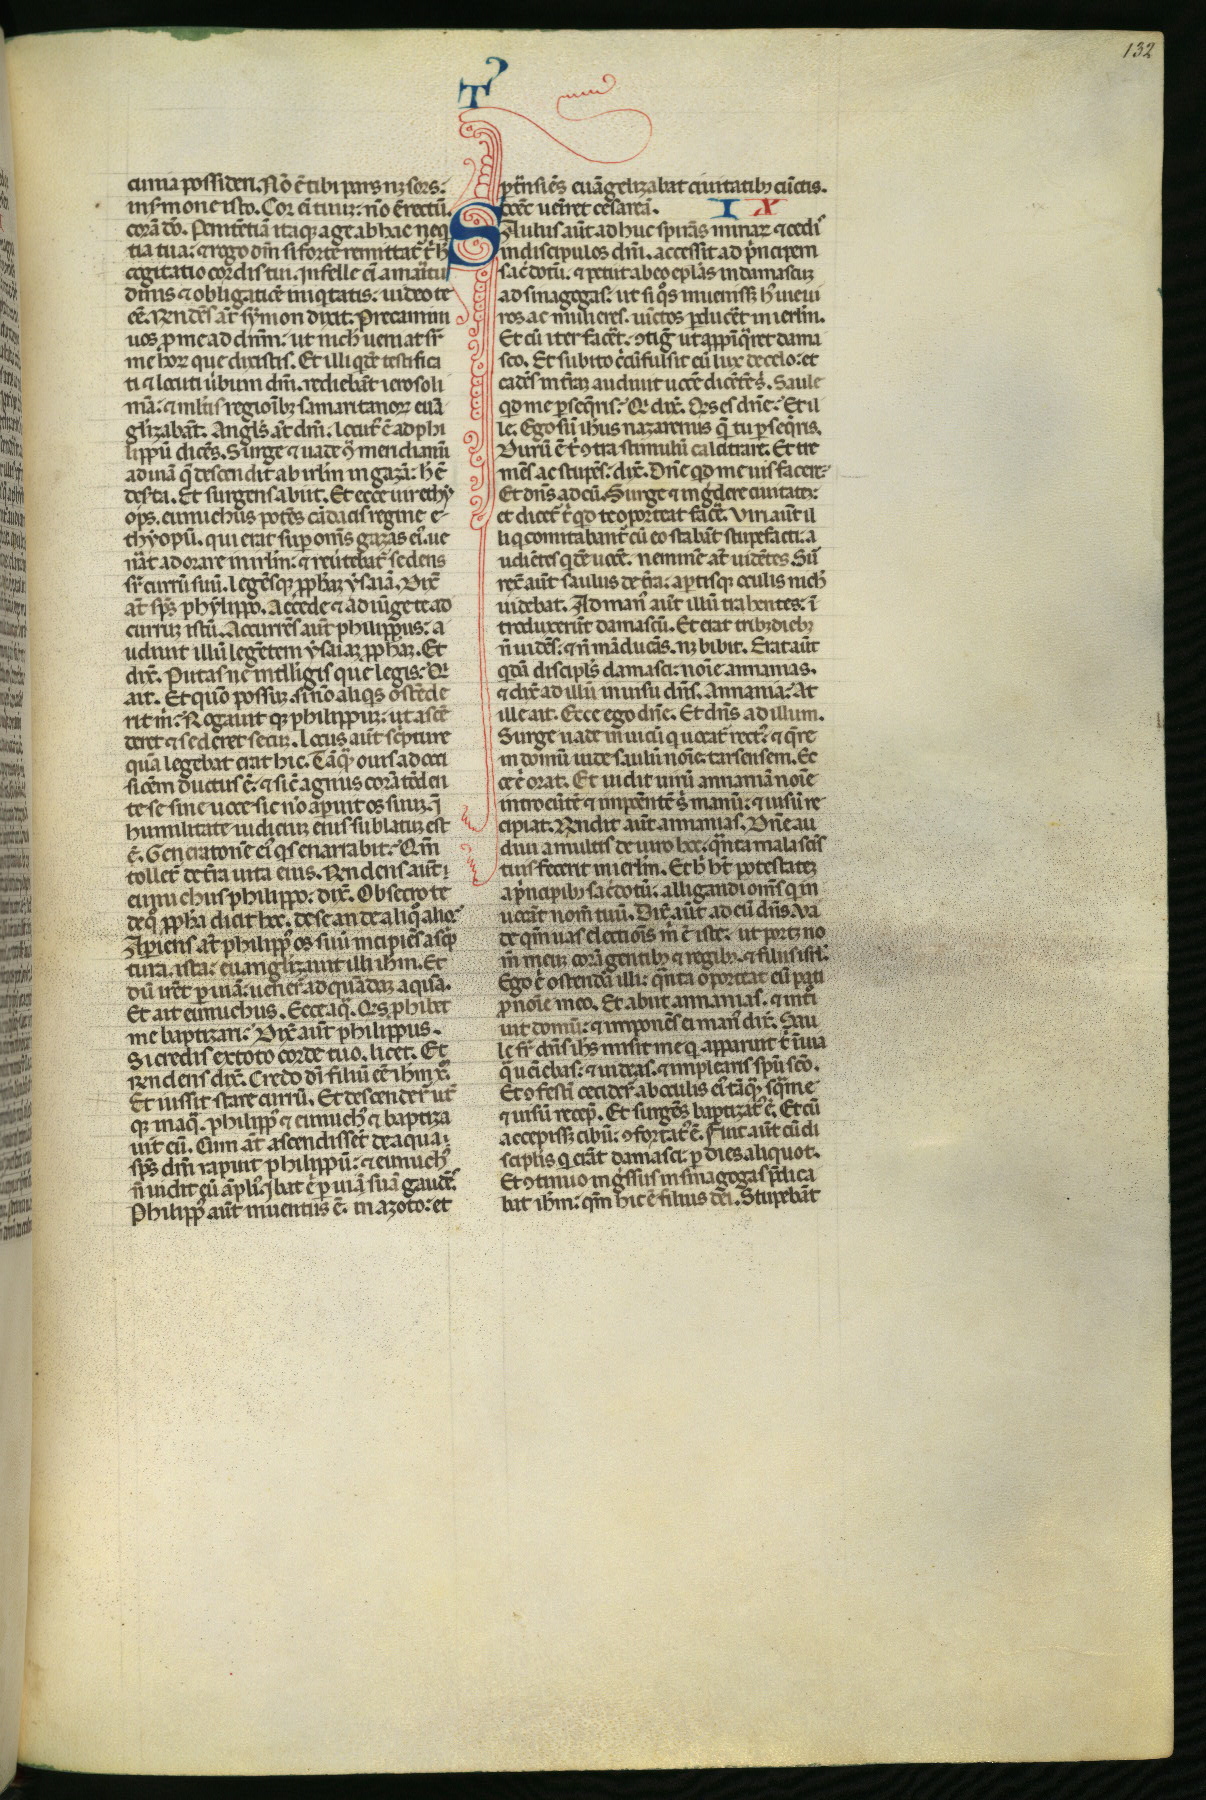 132
T
cunia possideri. Nō ē tibi pars nꝫ sors:
in s̾mone isto. Cor eī tuuꝫ: nō ē rectū
corā dō. Penitētiā itaqꝫ age ab hac neq̄
tia tua: ⁊ rogo dm̄ si forte remittat᷑ t̾ h̾
cogitatio cordis tui. In felle eī amaritu
dinis ⁊ obligatiōē iniq̇tatis: uideo te
eē. Rn̄dēs at̄ symon dixit. Precamini
uos p̱ me ad dnm̄: ut nich̾ ueniat sr̄
me hoꝝ que dixistis. Et illi q̇dē testifica
ti ⁊ locuti ubum dm̄. rediebāt ierosoli
mā: ⁊ mltis regionibꝫ samaritanoꝝ euā
gl̾izabāt. Angls̾ at̄ dm̄. locut᷒ ē ad phi
lippū dicēs. Surge ⁊ uade 9̾ meridianū
ad uiā q̄ descendit ab irlm̄ in gazā: h̾ ē
des̾ta. Et surgens abiit. Et ecce uir ethy
ops. eunuchus potēs cādacis regine e-
thyopū. qui erat sup̱ om̄s gazas ei᷒. ue
n̾at adorare in irlm̄: ⁊ reu̾tebat᷑ sedens
sr̄ currū suū. legēsqꝫ ꝓph̾aꝫ ysaiā. Dix̄
at̄ sp̄s phylippo. Accede ⁊ adiūge te ad
curruꝫ istū. Accurrēs aūt philippus: a
udiuit illū legētem ysaiaꝫ ꝓph̾aꝫ. Et
dix̄. Putas ne intelligis que legis: Qi
ait. Et quō possuꝫ. si nō aliq̇s ostēde
rit m̄: Rogauit qꝫ philippuꝫ: ut ascē
deret ⁊ sederet secuꝫ. Locus aūt sc̾pture
quā legebat erat hic. Tāq̄ ouis ad occi
sionē ductus ē: ⁊ sic̄ agnus corā tōdeū
te se sine uoce sic nō ap̱uit os suuꝫ. ī
humilitate iudiciuꝫ eius sublatuꝫ est
ē. Generationē ei᷒ q̇s enarrabit: Qm̄
tollet᷑ de t̾ra uita eius. Rn̄dens aūt
eunuchus philippo: dix̄. Obsecro te
de q̇ ꝓph̾a dicit hoc. de se an de aliq̇ alio:
Ap̱iens at̄ philipp᷒ os suū incipiēs a sc̾p
tura ista: euangl̾izauit illi ih̄m. Et
dū iret̄ p̱ uiā: uener̄ ad quādaꝫ aquā.
Et ait eunuchus. Ecce aq̄. Qis phibet
me baptizari: Dix̄ aūt philippus.
Si credis ex toto corde tuo. licet. Et
rn̄dens dix̄. Credo dī filiū eē ih̄m x̄.
Et iussit stare currū. Et descender̄ ut᷑
qꝫ in aq̄. philipp᷒ ⁊ eunuch᷒ ⁊ baptiza
uit eū. Cum at̄ ascendisset̄ de aqua:
sp̄s dm̄ rapuit philippū: ⁊ eunuch᷒
n̄ uidit eū ampli᷒. Ibat ē p̱ uiā suā gaudēs.
Philipp᷒ aūt inuentus ē. in azoto: et
p̱tn̄siēs euāgelizabat ciuitatibꝫ cūctis.
IX
Saulus aūt adhuc spirās minaꝝ ⁊ cedis
in discipulos dm̄. accessit ad p̾ncipem
sac̾dotū. ⁊ petiit ab eo ep̄las in damascuꝫ
ad sinagogas: ut si q̇s inuenissꝫ h᷒ uie ui
ros ac mulieres. uīctos p̱duc̾et in ierl̄m.
Et cū iter facet̄. 9tig̾ ut appīq̾ret dama
sco. Et subito c̾cūfulsit eū lux de celo: et
cadēs in t̾raꝫ audiuit uocē dicētē s̾. Saule
q̇d me p̱seq̾ris: Qi dix̄. Qis es dn̄e: Et il
le. Ego sū ih̄us nazarenus q̄ tu p̱seq̾ris.
Durū ē t̾ 9tra stimulū calcitrare. Et tre
mēs ac stupēs: dix̄. Dn̄e q̇d me uis facere:
Et dn̄s ad eū. Surge ⁊ ing̾dere ciuitateꝫ:
et dicet᷑ t̾ q̇d te oporteat fac̾e. Uiri aūt il
li q̇ comitabant᷑ cū eo stabāt stupefacti: a
udiētes q̇dē uocē. neminē at̄ uidētes. Sur
rex̄ aūt saulus de t̾ra: ap̱tisqꝫ oculis nich̾
uidebat. Ad man᷒ aūt illū trahentes: ī
troduxer̄t damascū. Et erat tribꝫ diebꝫ
n̄ uidēs: ⁊ n̄ māducās. nꝫ bibit. Erat aūt
q̇dā discipl̾s damasci: noīe annanias.
⁊ dix̄ ad illū in uisu dn̄s. Annania: At
ille ait. Ecce ego dn̄e. Et dn̄s ad illum.
Surge uade in uicū q̇ uocat᷑ rect᷒: ⁊ q̄re
in domū iude saulū noīe tarsensem. Ec
ce ē orat. Et uidit uirū annaniā noīe
introeūtē ⁊ imponētē s̾ manū: ⁊ uisū re
cipiat. Rn̄dit aūt annanias. Dn̄e au
diui a multis de uiro hoc: q̄nta mala scīs
tuis fecerit in ierl̄m. Et h̾ h̾t potestateꝫ
a p̾ncipibꝫ sac̾dotū: alligandi om̄s q̇ in
uocāt nom̄ tuū. Dix̄ aūt ad eū dn̄s. Ua
de qm̄ uas electiōis m̄ ē iste: ut portꝫ no
m̄ meuꝫ corā gentibꝫ ⁊ regibꝫ. ⁊ filiis isrl̾.
Ego ē ostendā illi: q̄nta oporteat eū pati
p̱ noīe meo. Et abiit annanias. ⁊ intro
uit domū: ⁊ imponēs ei man᷒ dix̄. Sau
le fr̄ dn̄s ih̄s misit me q̇ apparuit t̾ ī uia
q̄ ueniebas: ⁊ uideas. ⁊ implearis sp̄u sc̄o.
Et 9festī cecider̄ ab oculis ei᷒ tāq̄ sq̄me
⁊ uisū recep̱. Et surgēs baptizat᷒ ē. Et cū
accepissꝫ cibū: 9fortat᷒ ē. Fuit aūt cū di
scipl̾is q̇ erāt damasci: p̱ dies aliquot.
Et 9tinuo ing̾ssus in sinagogas p̄dica
bat ih̄m: qm̄ hic ē filius dei. Stupebāt